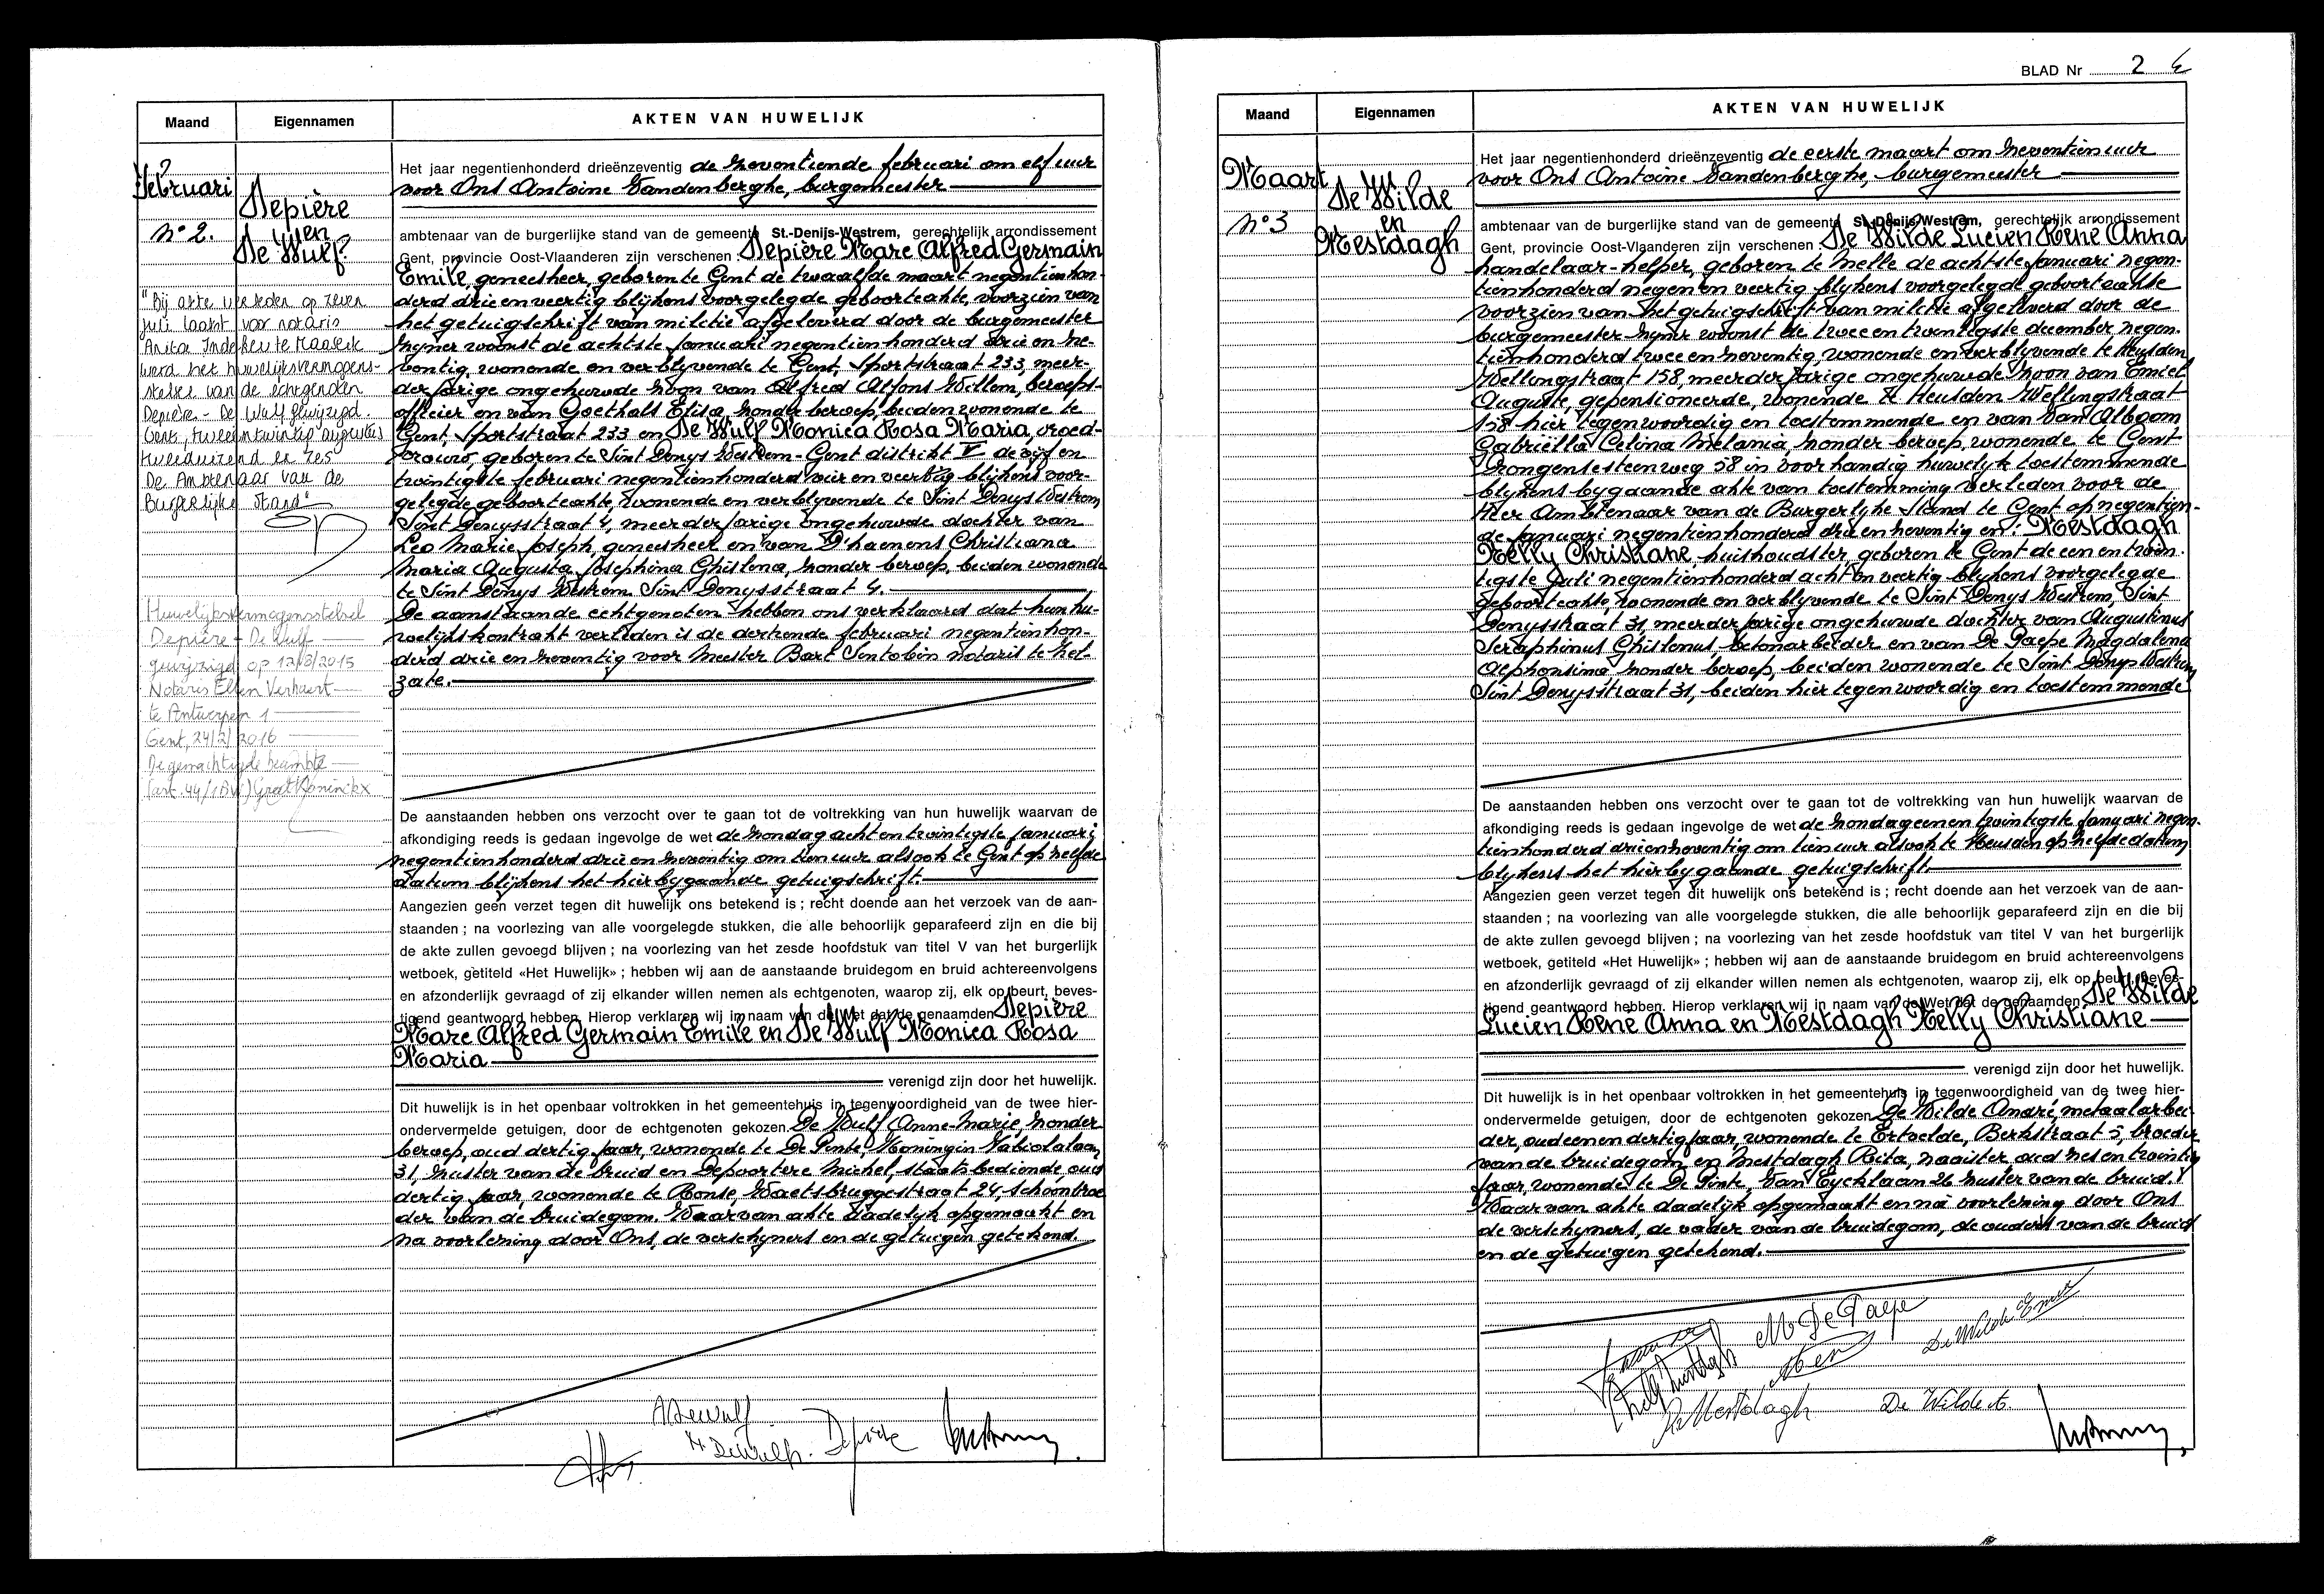 Maand
Eigennamen
AKTEN VAN HUWELIJK
Februari
n° 2.
Depière
en
De Wulf
"Bij akte verleden op zeven
juli laatst voor notaris
Anita Indekeu te Maaseik
werd het huwelijksvermogens-
stelsel van de echtgenoten
Depière - De Wulf gewijzigd.
Gent, tweeëntwintig augustus
tweeduizend en zes
De Ambtenaar van de
Burgerlijke Stand"
Huwelijksvermogensstelsel
Depière - De Wulf
gewijzigd op 12/8/2015
Notaris Ellen Verhaert
te Antwerpen 1
Gent, 24/2/2016
De gemachtigde beambte
(art. 44/1 BW) Greet Koninckx
Het jaar negentienhonderd drieënzeventig de zeventiende februari om elf uur
voor Ons Antoine Vandenberghe, burgemeester
ambtenaar van de burgerlijke stand van de gemeente St.-Denijs-Westrem, gerechtelijk arrondissement
Gent, provincie Oost-Vlaanderen zijn verschenen: Depière Marc Alfred Germain
Emile, geneesheer, geboren te Gent de twaalfde maart negentienhon-
derd drie en veertig blijkens voorgelegde geboorteakte, voorzien van
het getuigschrift van militie afgeleverd door de burgemeester
zijner woonst de achtste januari negentienhonderd drie en ze-
ventig, wonende en verblyvende te Gent, Sportstraat 233, meer-
derjarige ongehuwde zoon van Alfred Alfons Willem, beroeps-
officier en van Goethals Elisa, zonder beroep, beiden wonende te
Gent, Sportstraat 233 en De Wulf Monica Rosa Maria, vroed-
vrouw, geboren te Sint Denys Westrem-Gent distrikt V de vijf en
twintigste februari negentienhonderd vier en veertig blijkens voor-
gelegde geboorteakte, wonende en verblyvende te Sint Denys Westrem,
Sint Denysstraat 4, meerderjarige ongehuwde dochter van
Leo Marie Joseph, geneesheer en van D'haenens Christiana
Maria Augusta Josephina Ghislena, zonder beroep, beiden wonende
te Sint Denys Westrem Sint Denysstraat 4.
De aanstaande echtgenoten hebben ons verklaard dat hun hu-
welijkskontrakt verleden is de dertiende februari negentienhon-
derd drie en zeventig voor Meester Bart Sintobin notaris te Zel-
zate.
De aanstaanden hebben ons verzocht over te gaan tot de voltrekking van hun huwelijk waarvan de
afkondiging reeds is gedaan ingevolge de wet de zondag acht en twintigste januari
negentienhonderd drie en zeventig om tien uur alsook te Gent op zelfde
datum blijkens het hierbygaande getuigschrift.
Aangezien geen verzet tegen dit huwelijk ons betekend is ; recht doende aan het verzoek van de aan-
staanden ; na voorlezing van alle voorgelegde stukken, die alle behoorlijk geparafeerd zijn en die bij
de akte zullen gevoegd blijven ; na voorlezing van het zesde hoofdstuk van titel V van het burgerlijk
wetboek, getiteld «Het Huwelijk» ; hebben wij aan de aanstaande bruidegom en bruid achtereenvolgens
en afzonderlijk gevraagd of zij elkander willen nemen als echtgenoten, waarop zij, elk op beurt, beves-
tigend geantwoord hebben. Hierop verklaren wij in naam van de Wet dat de genaamden Depière
Marc Alfred Germain Emile en De Wulf Monica Rosa
Maria
verenigd zijn door het huwelijk.
Dit huwelijk is in het openbaar voltrokken in het gemeentehuis in tegenwoordigheid van de twee hier-
ondervermelde getuigen, door de echtgenoten gekozen De Wulf Anne-Marie, zonder
beroep, oud dertig jaar, wonende te De Pinte, Koningin Fabiolalaan
31, zuster van de bruid en Depoortere Michel, staatsbediende, oud
dertig jaar, wonende te Ronse, Waetsbruggestraat 24, schoonbroe-
der van de bruidegom. Waarvan akte dadelyk opgemaakt en
na voorlezing door Ons, de verschyners en de getuigen getekend.
ADewulf
M Dewulf. Depière
BLAD Nr 2
Maand
Eigennamen
AKTEN VAN HUWELIJK
Maart
n° 3
De Wilde
en
Mestdagh
Het jaar negentienhonderd drieënzeventig de eerste maart om zeventien uur
voor Ons Antoine Vandenberghe, burgemeester
ambtenaar van de burgerlijke stand van de gemeente St.-Denijs-Westrem, gerechtelijk arrondissement
Gent, provincie Oost-Vlaanderen zijn verschenen: De Wilde Lucien René Anna
handelaar-helper, geboren te Melle de achtste januari negen-
tienhonderd negen en veertig blykens voorgelegde geboorteakte
voorzien van het getuigschrift van militie afgeleverd door de
burgemeester zyner woonst de twee en twintigste december negen-
tienhonderd twee en zeventig, wonende en verblyvende te Heusden,
Wellingstraat 158, meerderjarige ongehuwde zoon van Emiel
Auguste, gepensioneerde, wonende te Heusden Wellingstraat
158 hier tegenwoordig en toestemmende en van Van Alboom
Gabriëlla Celina Melania, zonder beroep, wonende te Gent
Drongensesteenweg 58 in voorhandig huwelyk toestemmende
blykens bygaande akte van toestemming verleden voor de
Heer Ambtenaar van de Burgerlyke Stand te Gent op negentien-
de januari negentienhonderd drie en zeventig en: Mestdagh
Nelly Christiane, huishoudster, geboren te Gent de een en twin-
tigste juli negentienhonderd acht en veertig blykens voorgelegde
geboorteakte, wonende en verblyvende te Sint Denys Westrem, Sint
Denysstraat 31, meerderjarige ongehuwde dochter van Augustinus
Seraphinus Ghislenus, betonarbeider en van De Paepe Magdalena
Alphonsina zonder beroep, beiden wonende te Sint Denys Westrem
Sint Denysstraat 31, beiden hier tegenwoordig en toestemmende
De aanstaanden hebben ons verzocht over te gaan tot de voltrekking van hun huwelijk waarvan de
afkondiging reeds is gedaan ingevolge de wet de zondag eenentwintigste januari negen-
tienhonderd drieenzeventig om tien uur alsook te Heusden op zelfde datum
blykens het hierbygaande getuigschrift.
Aangezien geen verzet tegen dit huwelijk ons betekend is ; recht doende aan het verzoek van de aan-
staanden ; na voorlezing van alle voorgelegde stukken, die alle behoorlijk geparafeerd zijn en die bij
de akte zullen gevoegd blijven ; na voorlezing van het zesde hoofdstuk van titel V van het burgerlijk
wetboek, getiteld «Het Huwelijk» ; hebben wij aan de aanstaande bruidegom en bruid achtereenvolgens
en afzonderlijk gevraagd of zij elkander willen nemen als echtgenoten, waarop zij, elk op beurt, beves-
tigend geantwoord hebben. Hierop verklaren wij in naam van de Wet dat de genaamden De Wilde
Lucien René Anna en Mestdagh Nelly Christiane
verenigd zijn door het huwelijk.
Dit huwelijk is in het openbaar voltrokken in het gemeentehuis in tegenwoordigheid van de twee hier-
ondervermelde getuigen, door de echtgenoten gekozen De Wilde André, metaalarbei-
der, oud eenen dertig jaar, wonende te Ertvelde, Berkstraat 5, broeder
van de bruidegom en Mestdagh Rita, naaister oud zes en twintig
jaar, wonende te De Pinte, Van Eycklaan 26 zuster van de bruid.
Waarvan akte dadelijk opgemaakt en na voorlezing door Ons
de verschyners, de vader van de bruidegom, de ouders van de bruid
en de getuigen getekend.
M De Paepe
De Wilde Emiel
Nelly Mestdagh
R. Mestdagh
De Wilde A.